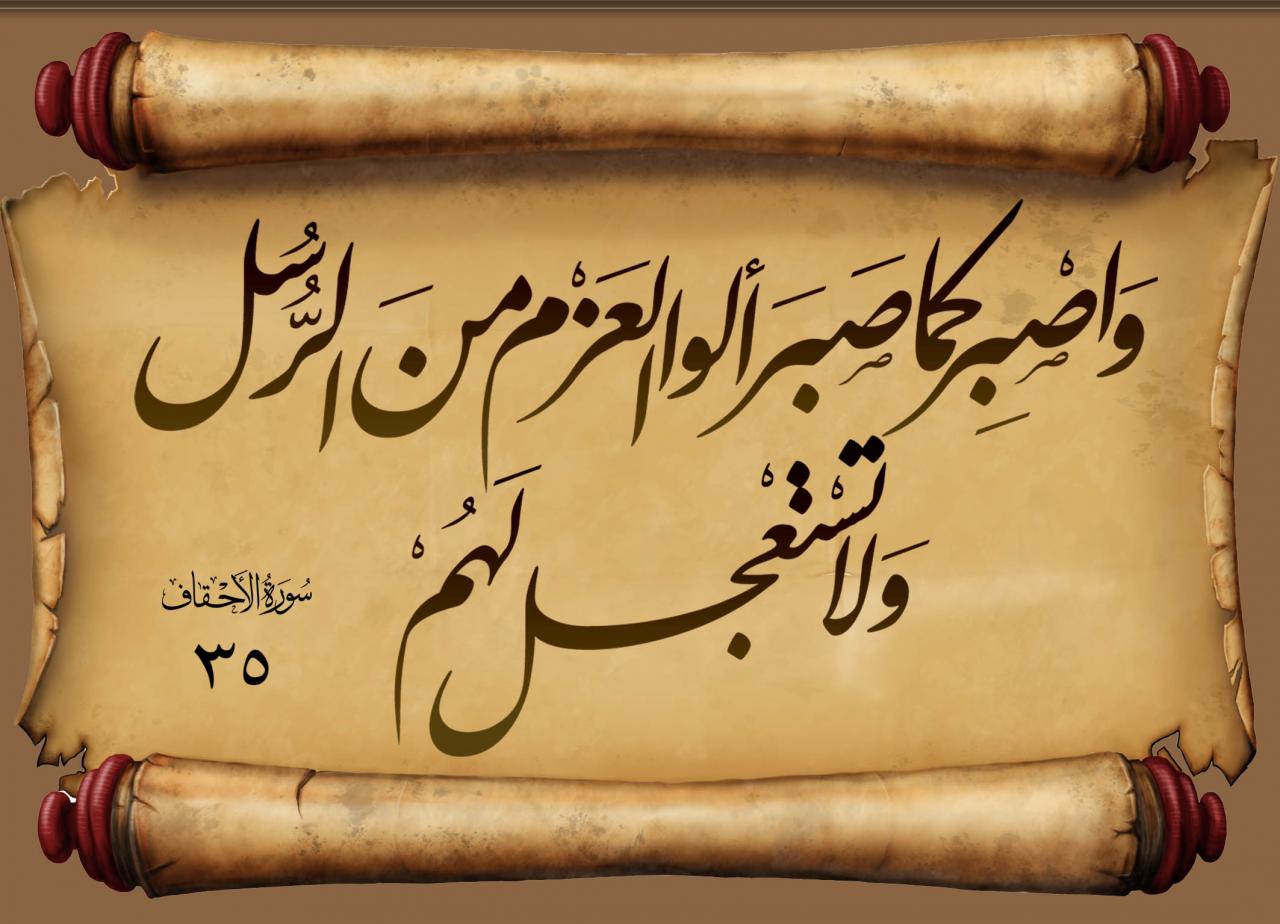 وَاصْبِرْ كَمَا صَبَرَ أُلوا العَزْمِ مِنَ الرُّسُلِ
وَلا تَسْتَعْجِل لَهُمْ
سُورَةُ الأَحْقَاف
٣٥